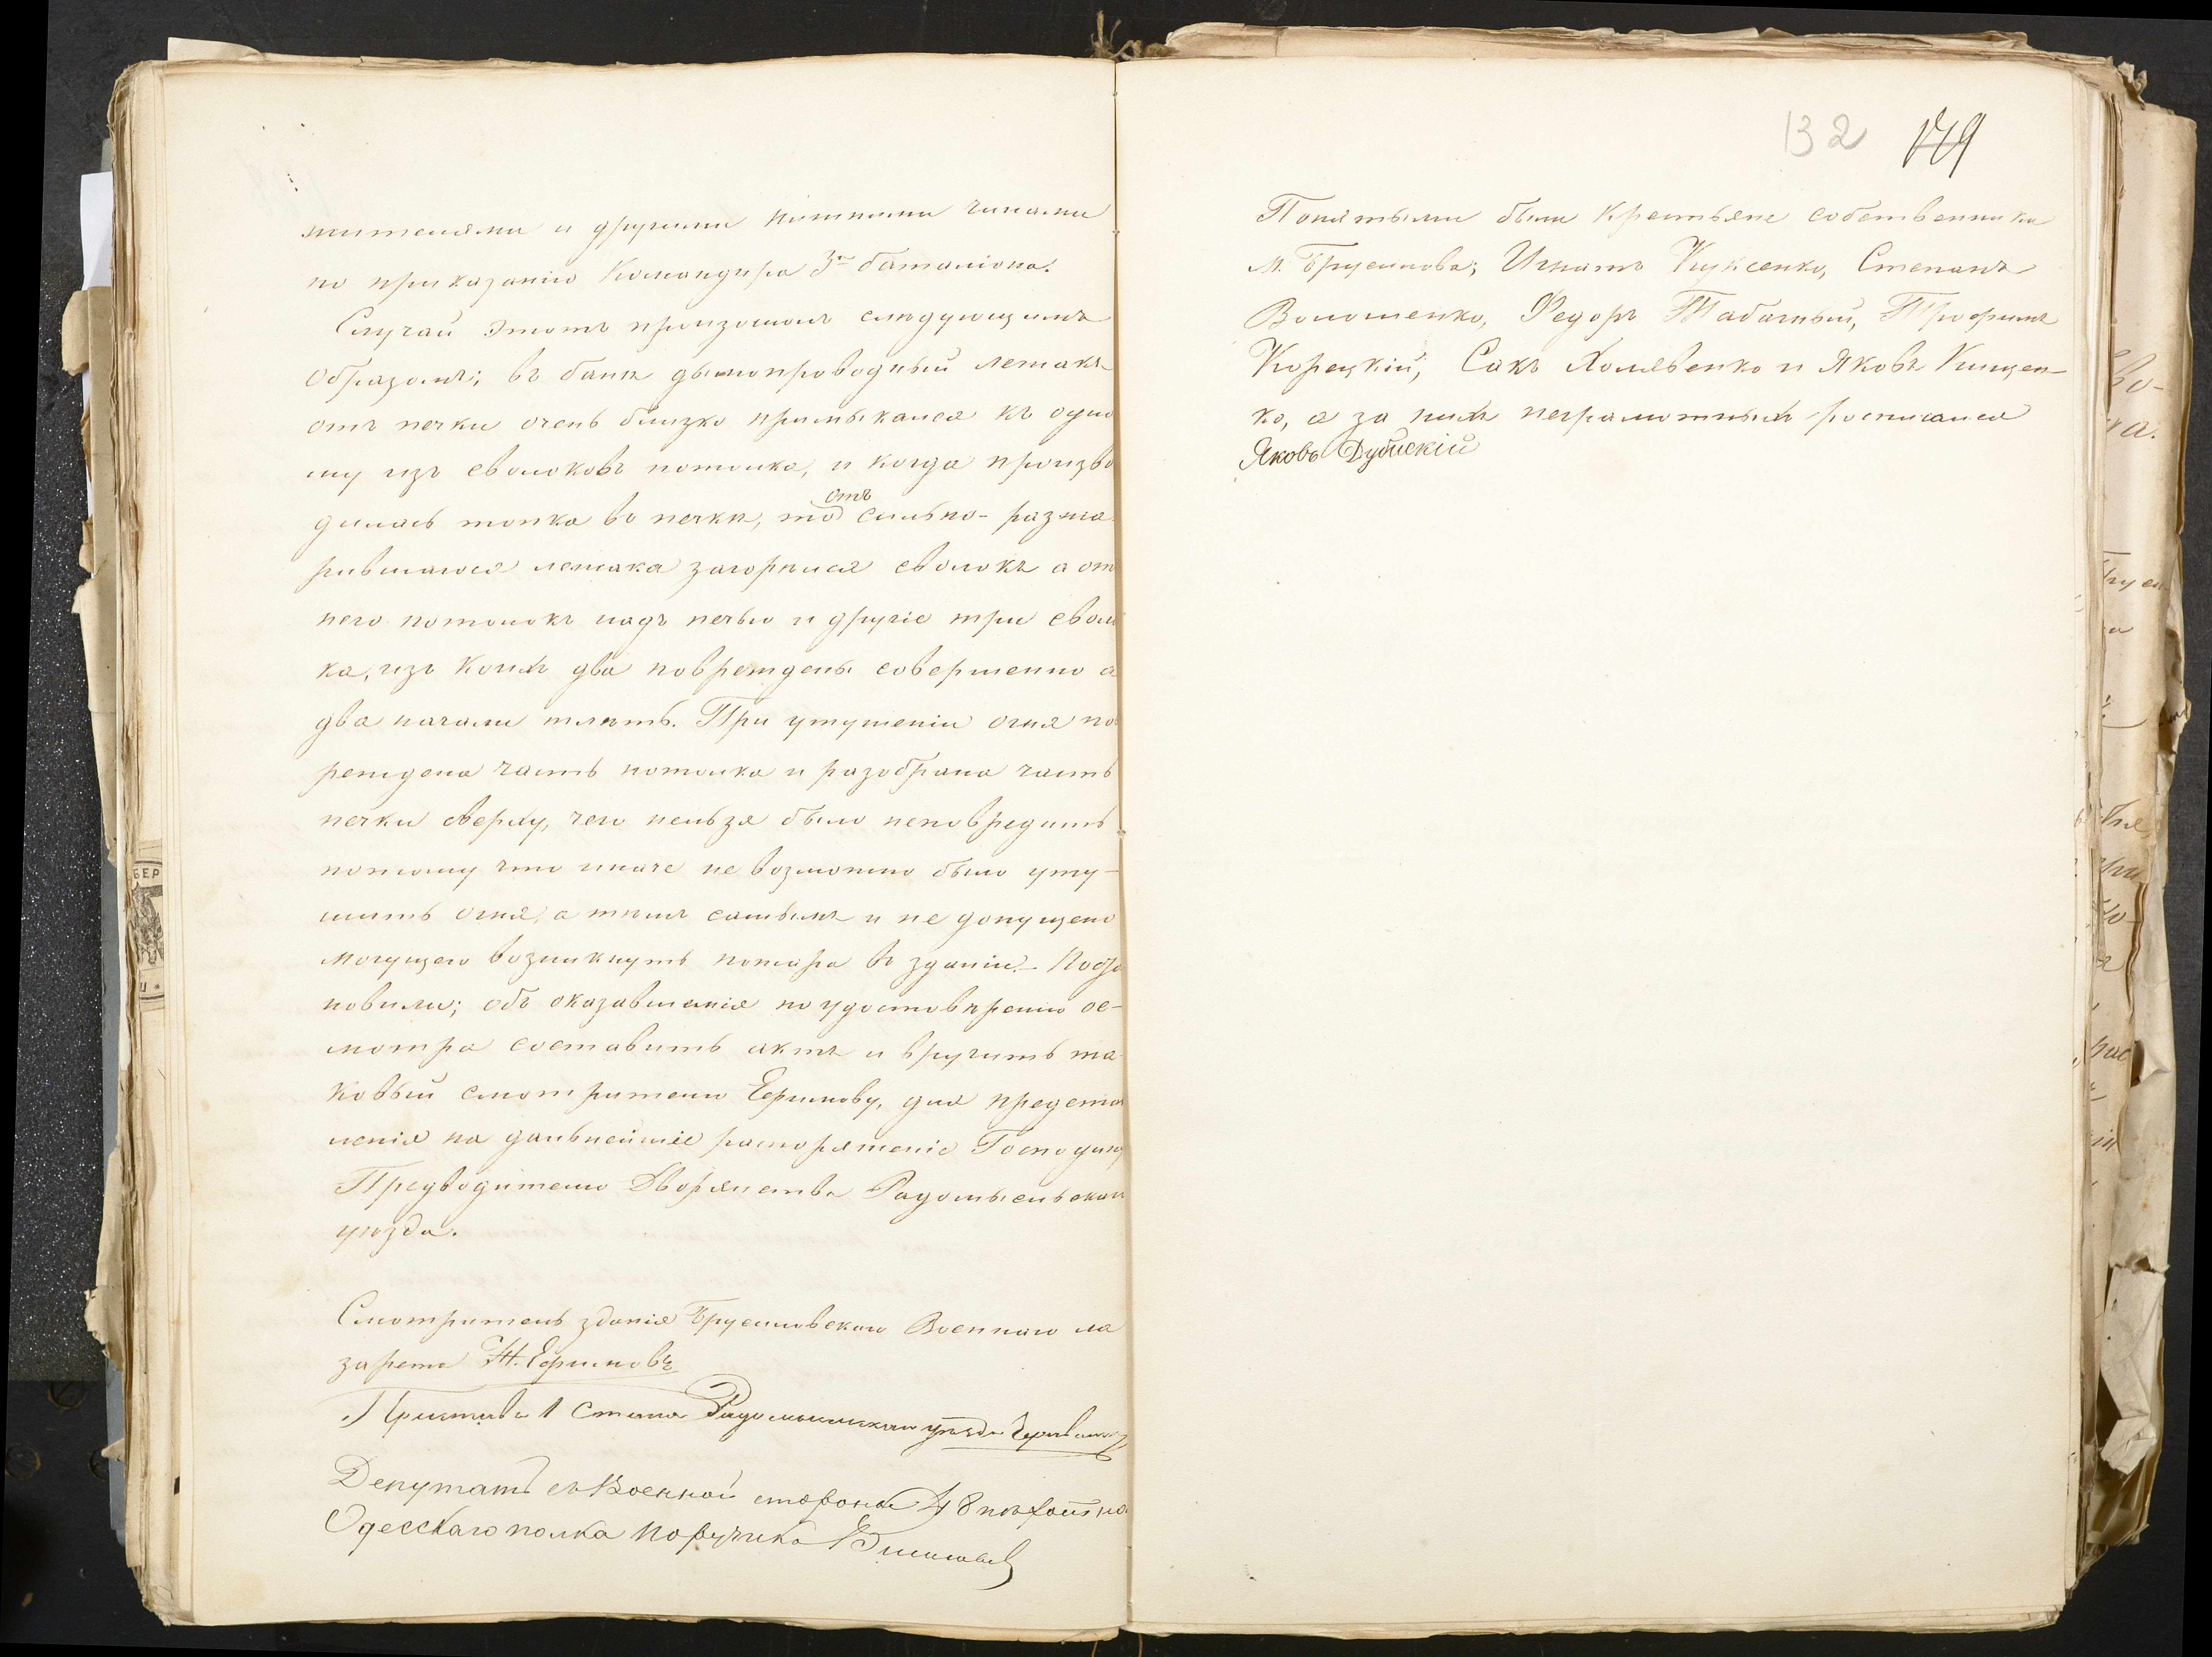 жителями и другими нижними чинами
по приказанію Командира 3го баталіона.
Случай этотъ произошолъ слѣдующимъ
образомъ; въ банѣ дымопроводный лежакъ
отъ печки очень близко примыкался къ одно
му изъ сволоковъ потолка, и когда произво
дилась топка въ печкѣ, то отъ сильно-разжа
рившагося лежака загорѣлся сволокъ а от
него потолокъ надъ печью и другіе три своло
ка, изъ коихъ два повреждены совершенно а
два начали тлѣть. При утушеніи огня пов
реждена часть потолка и разобрана часть
печки сверху, чего нельзя было неповредить
потому что иначе не возможно было уту-
шить огня, а тѣмъ самымъ и не допущено
могущего возникнуть пожара въ зданіи. - Поста
новили; объ оказавшемся по удостовѣренію ос-
мотра составить актъ и вручить та
ковый смотрителю Ефимову, для представ
ленія на дальнейшіе распоряженіе Господину
Предводителю Дворянства Радомысльскаго
уѣзда.
Смотритель зданія Брусиловскаго Военнаго ла
зарета Ж. Ефимовъ
Приставъ 1 Стана Радомысльскаго уѣзда
Депутатъ съ Военной стороны 48 пѣхотнаго
Одесскаго полка Поручикъ
132 179
Понятыми были Крестьяне собственники
М. Брусилова; Игнатъ Куксенко, Степанъ
Волошенко, Федоръ Табачный, Трофимъ
Корецкій, Сакъ Холявенко и Яковъ Кищен-
ко, а за нихъ неграмотныхъ росписался
Яковъ Дубискій